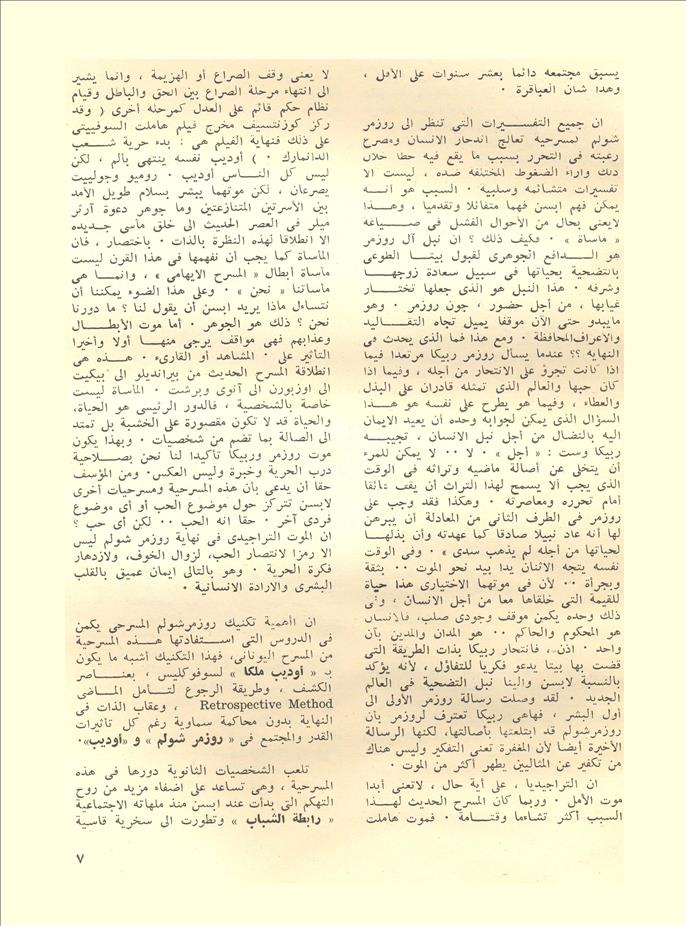 يسبق مجتمعه دائما بعشر سنوات على الأقل ،
وهذا شأن العباقرة ٠
ان جميع التفسيرات التي تنظر الى روزمر
شولم كمسرحيه تعالج اندحار الانسان ومصرع
رغبته في التحرر بسبب ما يقع فيه خلال
ذلك وازاء الضغوط المختلفة ضده ، ليست الا
تفسيرات متشائمه وسلبية ٠ السبب هو أنـه
يمكن فهم ابسن فهما متفائلا وتقدميا ، وهـذا
لايعني بحال من الأحوال الفشل في صـياغه
« مأساة » ٠ فكيف ذلك ؟ ان نبل آل روزمر
هو الـدافع الجوهرى لقبول بيتـا الطوعى
بالتضحية بحياتها في سبيل سعادة زوجهـا
وشرفه ٠ هذا النبل هو الذى جعلها تختـار
غيابها ، من أجل حضور ، جون روزمر ٠ وهو
مايبدو حتى الآن موقفا يميل تجاه التقـاليد
والاعراف المحافظة ٠ ومع هذا فما الذى يحدث فى
النهايه ؟؟ عندما يسأل روزمر ربيكا مرتعدا فيما
اذا كانت تجرؤ على الانتحار من أجله ، وفيما اذا
كان حبها والعالم الذى تمثله قادران على البذل
والعطاء ، وفيما هو يطرح على نفسه هو هـذا
السؤال الذى يمكن لجوابه وحده أن يعيد الايمان
اليه بالنضال من أجل نبل الانسان ، تجيبـه
ربيكا وست : « أجل » ٠ لا ٠٠ لا يمكن للمرء
أن يتخلى عن أصالة ماضيه وتراثه في الوقت
الذى يجب ألا يسمح لهذا التراث أن يقف عائقا
أمام تحرره ومعاصرته ٠ وهكذا فقد وجب على
روزمر فى الطرف الثانى من المعادلة أن يبرهن
لها أنه عاد نبيلا صادقا كما عهدته وأن بذلها
لحياتها من أجله لم يذهب سدى » ٠ وفي الوقت
نفسه يتجه الاثنان يدا بيد نحو الموت ٠٠ بثقة
وبجرأة ٠٠ لأن في موتهما الاختيارى هذا حياة
للقيمة التى خلقاها معا من أجل الانسان ، وفى
ذلك وحده يكمن موقف وجودى صلب، فالانسان
هو المحكوم والحاكم ٠٠ هو المدان والمدين بآن
واحد ٠ اذن، فانتحار ربيكا بذات الطريقة التى
قضت بها بيتا يدعو فكريا للتفاؤل ، لأنه يؤكد
بالنسبة لابسن والينا نبل التضحية في العالم
الجديد ٠ لقد وصلت رسالة روزمر الأولى الى
أول البشر ، فهاهى ربيكا تعترف لروزمر بأن
روزمرشولم قد ابتلعتها بأصالتها، لكنها الرسالة
الأخيرة أيضا لأن المغفرة تعنى التفكير وليس هناك
من تكفير عن المثاليين يطهر أكثر من الموت ٠
ان التراجيديا ، على أية حال ، لاتعنى أبدا
موت الأمل ٠ وربما كان المسرح الحديث لهـذا
السبب أكثر تشاءما وقتـامة ٠ فموت هاملت
لا يعنى وقف الصراع أو الهزيمة ، وانما يشير
الى انتهاء مرحلة الصراع بين الحق والباطل وقيام
نظام حكم قائم على العدل كمرحله أخرى ( وقد
ركز كوزنتسيف مخرج فيلم هاملت السوفييتى
على ذلك فنهاية الفيلم هى : بدء حرية شـعب
الدانمارك ٠ ) أوديب نفسه ينتهى بألم ، لكن
ليس كل النـاس أوديب ٠ روميو وجولييت
يصرعان ، لكن موتهما يبشر بسلام طويل الأمد
بين الأسرتين المتنازعتين وما جوهر دعوة آرثر
ميلر في العصر الحديث الى خلق مآسى جديده
الا انطلاقا لهذه النظرة بالذات ٠ باختصار ، فان
المأساة كما يجب أن نفهمها في هذا القرن ليست
مأساة أبطال « المسرح الايهامى » ، وانمـا هى
مأساتنا « نحن » ٠ وعلى هذا الضوء يمكننا أن
نتساءل ماذا يريد ابسن أن يقول لنا ؟ ما دورنا
نحن ؟ ذلك هو الجوهر ٠ أما موت الأبطـال
وعذابهم فهى مواقف يرجى منهـا أولا وأخيرا
التأثير على ٠ المشاهد أو القارىء ٠ هـذه هى
انطلاقة المسرح الحديث من بيرانديلو الى بيكيت
الى اوزبورن الى آنوى وبرشت ٠ المأساة ليست
خاصة بالشخصية ، فالدور الرئيسى هو الحياة،
والحياة قد لا تكون مقصورة على الخشبة بل تمتد
الى الصالة بما تضم من شخصيات ٠ وبهذا يكون
موت روزمر وربيكا تأكيدا لنا نحن بصـلاحية
درب الحرية وخبرة وليس العكس، ومن المؤسف
حقا أن يدعى بأن هذه المسرحية ومسرحيات أخرى
لابسن تتركز حول موضوع الحب أو أى موضوع
فردى آخر ٠ حقا انه الحب ٠٠ لكن أى حب ؟
ان الموت التراجيدى فى نهاية روزمر شولم ليس
الا رمزا لانتصار الحب، لزوال الخوف، ولازدهار
فكرة الحرية ٠ وهو بالتالى ايمان عميق بالقلب
البشرى والارادة الانسانية ٠
ان أهمية تكنيك روزمرشولم المسرحى يكمن
فى الدروس التى اسـتفادتها هـذه المسرحية
من المسرح اليونانى، فهذا التكنيك أشبه ما يكون
بـ « أوديب ملكا » لسوفوكليس ، بعنـاصر
الكشف ، وطريقة الرجوع لتـأمل المـاضى
Retrospective Method ، وعقاب الذات فى
النهاية بدون محاكمة سماوية رغم كل تأثيرات
القدر والمجتمع فى « روزمر شولم » و «أوديب»٠
تلعب الشخصيات الثانوية دورها فى هذه
المسرحية ، وهى تساعد على اضفاء مزيد من روح
التهكم التى بدأت عند ابسن منذ ملهاته الاجتماعية
« رابطة الشباب » وتطورت الى سخرية قاسية
٧